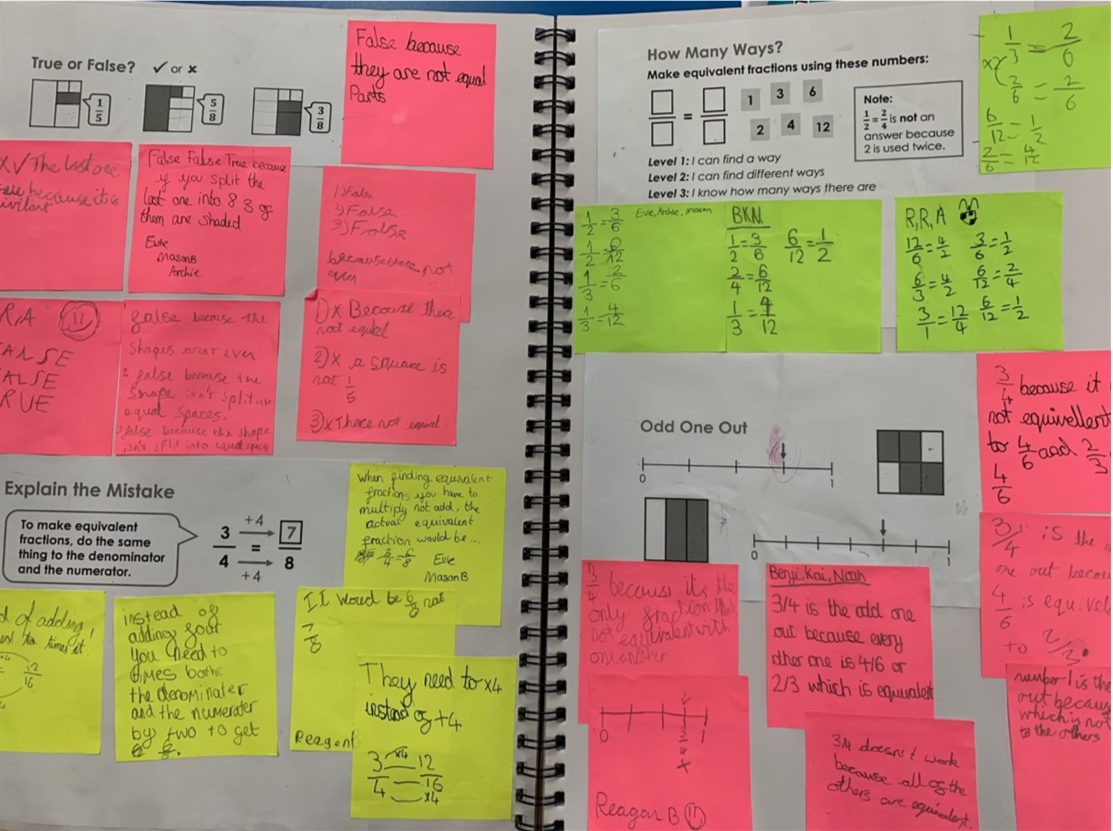 True or False? ✓ or ×
1/5
5/8
3/8
False because
they are not equal
Parts
X √ The last one
because it is
False False True because
if you split the
last one into 8 3 of
them are shaded
Evie
Mason B
Archie
1) False
2) False
3) False
because there not
even
R,A
ALSE
ALSE
RUE
false because the
Shapes arent even
2 false because the
Shape isn't split into
equal spaces.
false because the shape
isn't split into equal
1) X Because there
not equal
2) X a square is
not 1/5
3) X There not equal
Explain the Mistake
To make equivalent
fractions, do the same
thing to the denominator
and the numerator.
+4
3/4 = 7/8
+4
When finding equivalent
fractions you have to
multiply not add, the
actual equivalent
fraction would be...
3/4 = 6/8 Evie
Mason B
d of adding!
to times it.
12/16
instead of
adding four
you need to
times both
the denominater
and the numerater
by two to get
It would be 6/8 not
7/8
Reagan
They need to x4
instead of +4
x4
3/4 12/16
x4
How Many Ways?
Make equivalent fractions using these numbers:
=
1 3 6
2 4 12
Note:
1/2 = 2/4 is not an
answer because
2 is used twice.
Level 1: I can find a way
Level 2: I can find different ways
Level 3: I know how many ways there are
1/3 = 2/6
x2
2/6 = 2/6
6/12 = 1/2
2/6 = 4/12
Evie, Archie, Mason
1/2 = 3/6
1/2 = 6/12
1/3 = 2/6
1/3 = 4/12
BKN
1/2 = 3/6 6/12 = 1/2
2/4 = 6/12
1/3 = 4/12
R,R,A
12/6 = 4/2 3/6 = 1/2
6/3 = 4/2 6/12 = 2/4
3/1 = 12/4 6/12 = 1/2
Odd One Out
0 1
0 1
3/4 because it
not equivellent
to 4/6 and 2/3
4/6
3/4 is the
one out becau
4/6 is equ
to 2/3
3/4 because its the
only fraction
not equivalent with
one another
Benji, Kai, Noah
3/4 is the odd one
out because every
other one is 4/6 or
2/3 which is equivalent
number 1 is the
out because
which is not
to the others
0 3/4 1
X
Reagan B
3/4 doesn't work
because all of the
others are equivalent.